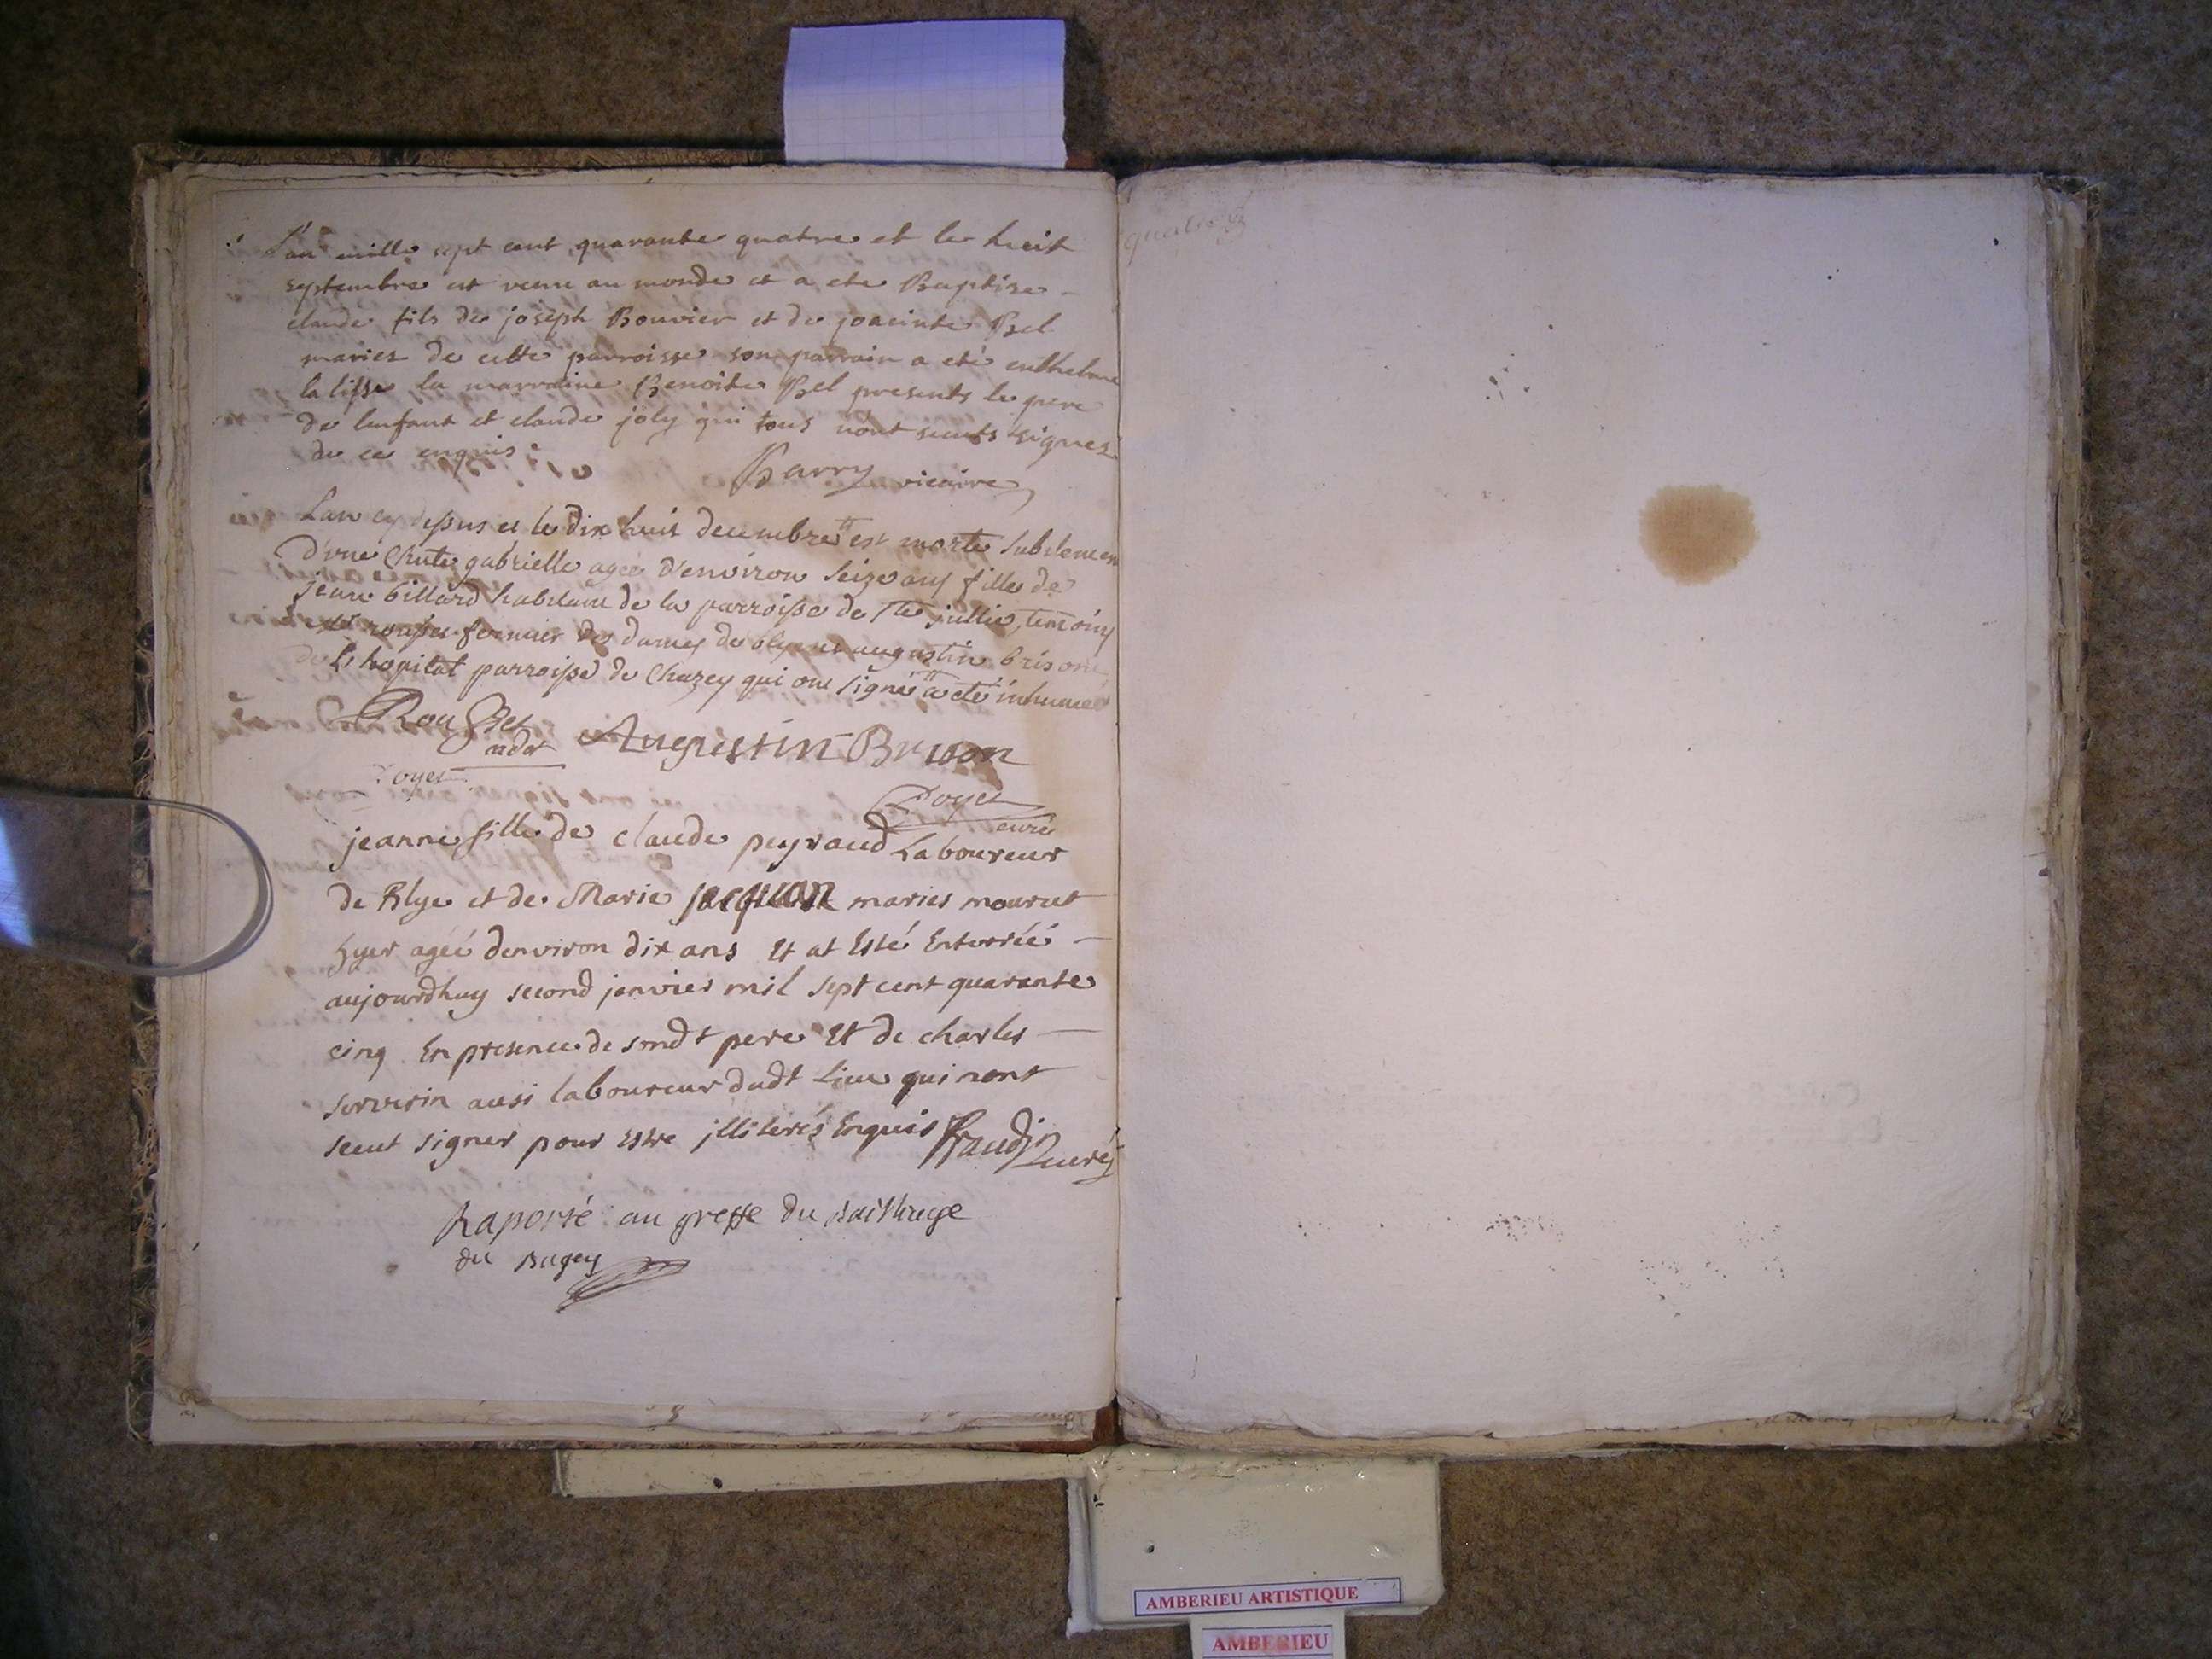 L'an mille sept cent quarante quatre et le huit
septembre est venu au monde et a ete Baptise
claude fils de joseph Bouvier et de joacinte Bel
maries de cette parroisse son parrain a eté
la marraine Benoite Bel presents le pere
de lenfant et claude joly qui tous nont sceuts signer
de ce enquis
Barry vicaire
Lan cy dessus et le dix huit decembre est morte subitement
d'une chute gabrielle agée d'environ seize ans fille de
jean billard habitant de la parroisse de Ste jullie, temoins
Sr rouffet fermier des dames de blye et augustin brison
de Lhopital parroisse de Chazey qui ont signé a eté inhumée
Augustin Brison
Doyet
Doyet
curé
jeanne fille de claude peyraud Laboureur
de Blye et de Marie jacquan maries mourut
hyer agéé denviron dix ans et at Esté Enterréé
aujourdhuy second janvier mil sept cent quarante
cinq En presence de sondt pere et de charles
aussi laboureur dudt Lieu qui nont
sceut signer pour Estre jlliterés Enquis
curé
Raporté au greffe du Bailliage
du Bugey
AMBERIEU ARTISTIQUE
AMBERIEU